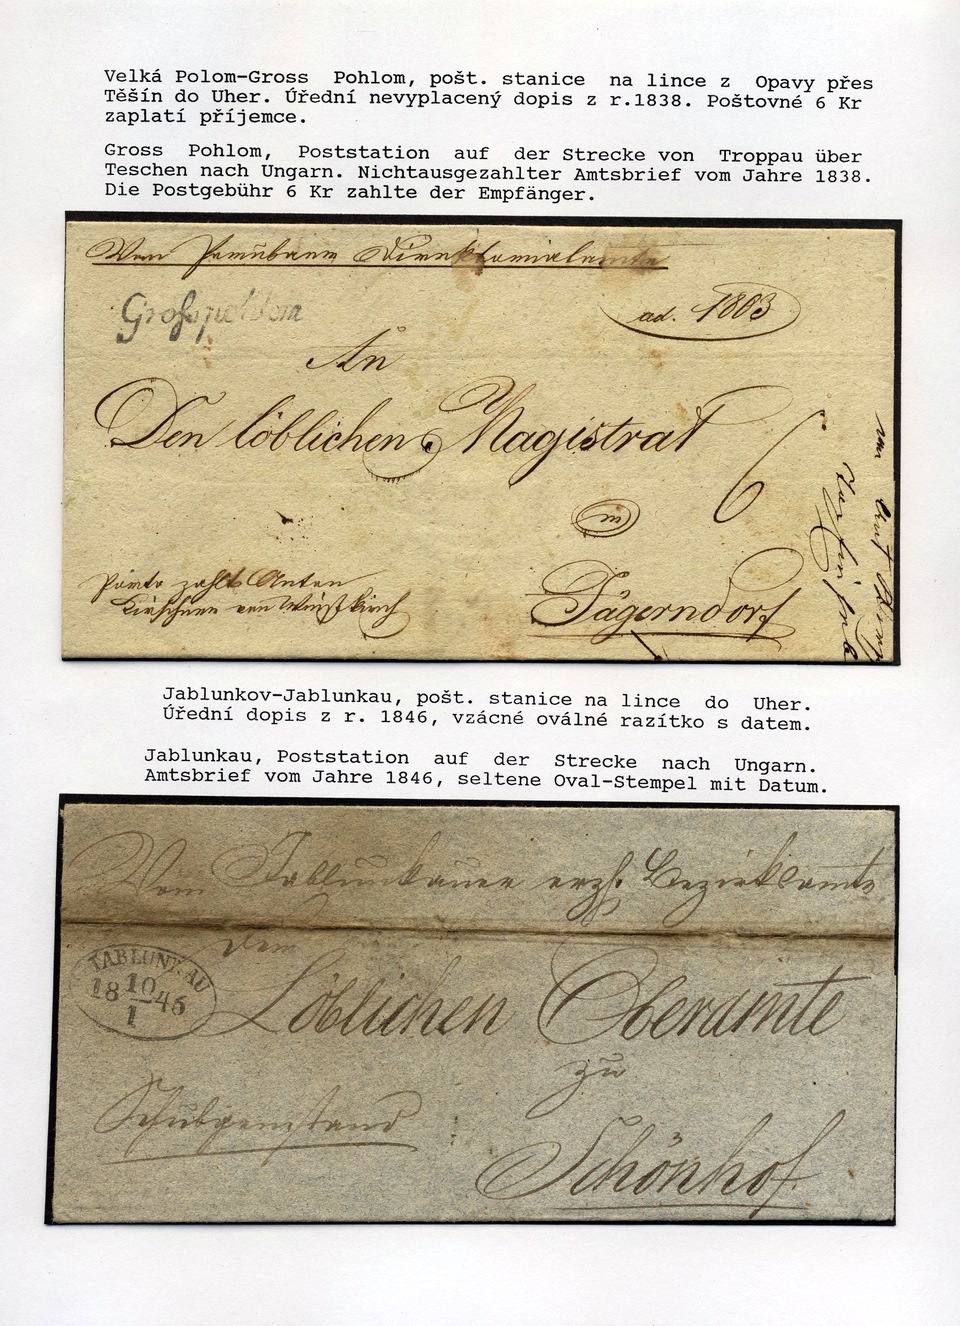 Velká Polom-Gross Pohlom, pošt. stanice na lince z Opavy přes
Těšín do Uher. Úřední nevyplacený dopis z r.1838. Poštovné 6 Kr
zaplatí příjemce.
Gross Pohlom, Poststation auf der Strecke von Troppau über
Teschen nach Ungarn. Nichtausgezahlter Amtsbrief vom Jahre 1838.
Die Postgebühr 6 Kr zahlte der Empfänger.
Vom
Grosspohlom
ad. 1803
An
Den löblichen Magistrat
6
in
Jägerndorf
Porto zahlt Anton
Kirschner von
Jablunkov-Jablunkau, pošt. stanice na lince do Uher.
Úřední dopis z r. 1846, vzácné oválné razítko s datem.
Jablunkau, Poststation auf der Strecke nach Ungarn.
Amtsbrief vom Jahre 1846, seltene Oval-Stempel mit Datum.
Vom Jablunkauer erzh. Bezirksamte
dem
JABLUNKAU
18 10/1 46
Löblichen Oberamte
zu
Schönhof